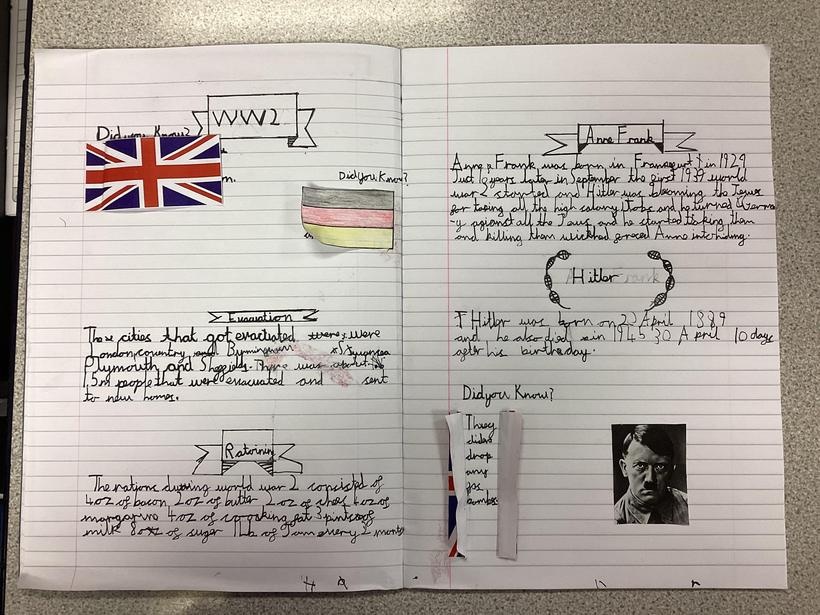 WW2
Did you Know?
m.
Did you Know?
Evacuation
These cities that got evacuated were were
London, country and Birmingham Swansea
Plymouth and There was about
1.5m people that were evacuated and sent
to new homes.
Rationing
The rations during world war 2 consisted of
4oz of bacon 2oz of butter 2oz of chees 4oz of
margarine 4oz of cooking fat 3 pints of
milk 8oz of suger 1lb of Jam every 2 month
Anne Frank
Anne Frank was born in in 1929
Just 10 years later in September the first 1939 world
war 2 started and Hitler was blamming the Jews
for taking all the high salary Jobs and he turned Germa
-y against all the Jews and he started taking them
and killing them Anne inclhding.
Hitler
Hitler was born on 22 April 1889
and he also died in 1945 30 April 10 days
after his birthday.
Did you Know?
They
didnt
drop
any
gas
bombs